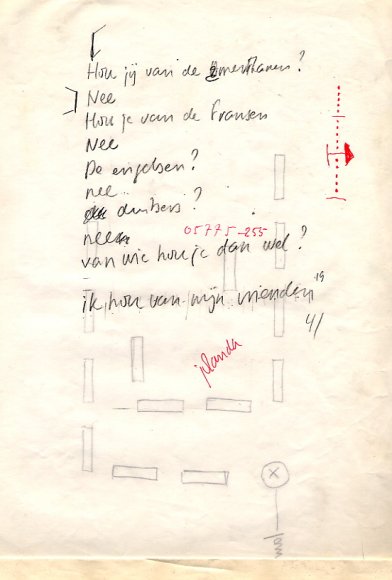 Hou jij van de Amerikanen?
Nee
Hou je van de Fransen
Nee
De engelsen?
nee
duitsers?
nee
05775-255
van wie hou je dan wel?
ik hou van mijn vrienden
19
4/
jolanda
X